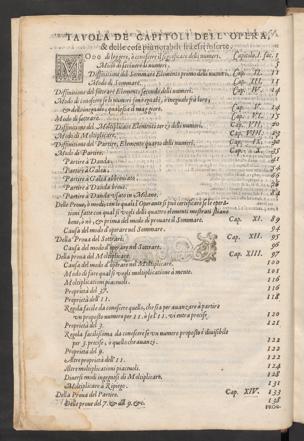 TAVOLA DE' CAPITOLI DELL' OPERA,
& delle cose più notabili frà essi inserte.
MODO di leggere, ò conoscere il significare delli numeri, Capitolo I. fac. 1
Modo di scrivere li numeri,
Diffinitione del Sommare Elemento primo delli numeri. Cap. II. 11
Modo di Sommare. Cap. III.
Diffinitione del sottrare Elemento secondo delli numeri. Cap. IV. 14
Modo di conoscere se li numeri sono eguali, ò ineguali frà loro,
& dell'ineguale, qual sia il maggiore. Cap. V.
Modo di sottrare. Cap. VI. 15
Diffinitione del Moltiplicare Elemento terzo delli numeri. Cap. VII. 20
Modo di Moltiplicare. Cap. VIII. 23
Diffinitione del Partire, Elemento quarto delli numeri. Cap. IX. 30
Modo di Partire. Cap. X.
Partire à Danda.
Partire à Galea.
Partire à Galea abbreviata.
Partire à Danda breve.
Partire à Danda usata in Milano.
Delle Prove, ò modi, con le quali l'Operante si può certificare se le operationi
fatte con qual si vogli delli quattro elementi mostrati stiano
bene, ò nò, & prima del modo di provare il Sommare. Cap. XI. 89
Causa del modo d'operare nel Sommare. 94
Della Prova del Sottrare. Cap. XII. 95
Causa del modo d'operare nel Sottrare. 96
Della Prova del Moltiplicare. Cap. XIII. 97
Causa del modo d'operare nel Moltiplicare. 100
Modo di fare qual si vogli moltiplicatione à mente. 101
Moltiplicationi piacevoli. 116
Proprietà del 37. 116
Proprietà dell' 11. 118
Regola facile da conoscere quello, che sia per avanzare à partire
un proposto numero per 11. à se l' 11. vi entra precise. 120
Proprietà del 3. 121
Regola facilissima da conoscere se un numero proposto è divisibile
per 3. precise, ò quello che avanzi. 122
Proprietà del 9. 122
Altre proprietà dell' 11. 123
Altre moltiplicationi piacevoli. 124
Diversi modi ingeniosi di Moltiplicare. 128
Moltiplicare à Ripiego. 131
Della Prova del Partire. Cap. XIV. 133
Delle prove del 7. & dell 9. &c. 138
PROE-